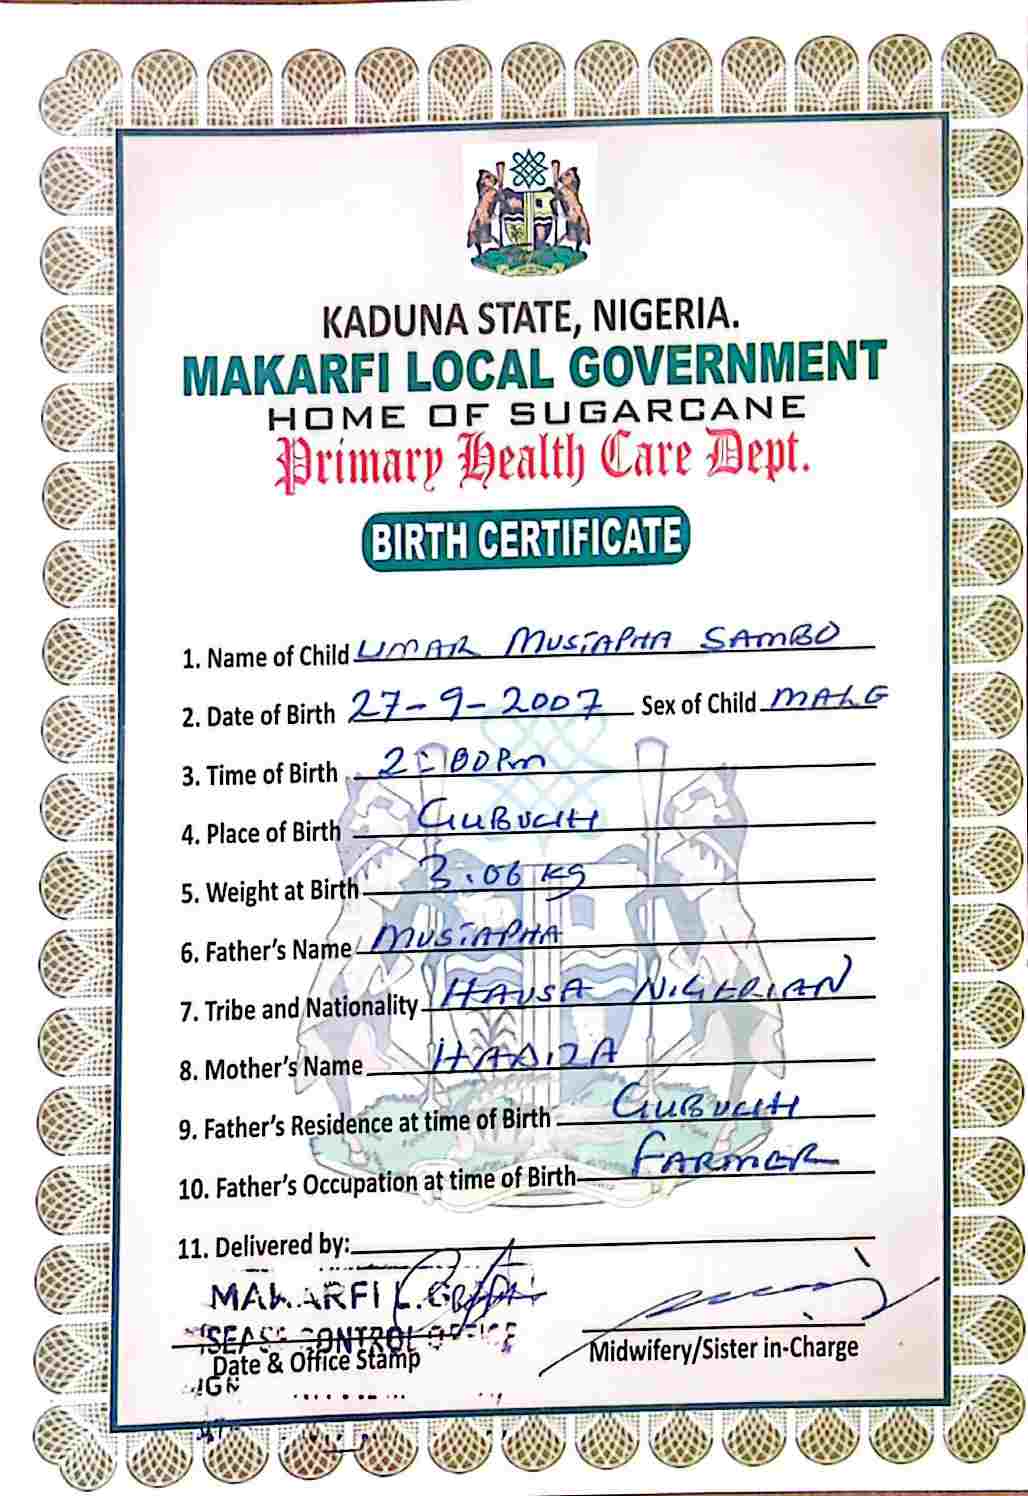 KADUNA STATE, NIGERIA.
MAKARFI LOCAL GOVERNMENT
HOME OF SUGARCANE
Primary Health Care Dept.
BIRTH CERTIFICATE
1. Name of Child UMAR MUSTAPHA SAMBO
2. Date of Birth 27-9-2007 Sex of Child MALE
3. Time of Birth 2:00Pm
4. Place of Birth GUBUCHI
5. Weight at Birth 3.06 kg
6. Father's Name MUSTAPHA
7. Tribe and Nationality HAUSA NIGERIAN
8. Mother's Name HADIZA
9. Father's Residence at time of Birth GUBUCHI
10. Father's Occupation at time of Birth FARMER
11. Delivered by:
MAKARFI L.G
CONTROL OFFICE
Date & Office Stamp Midwifery/Sister in-Charge